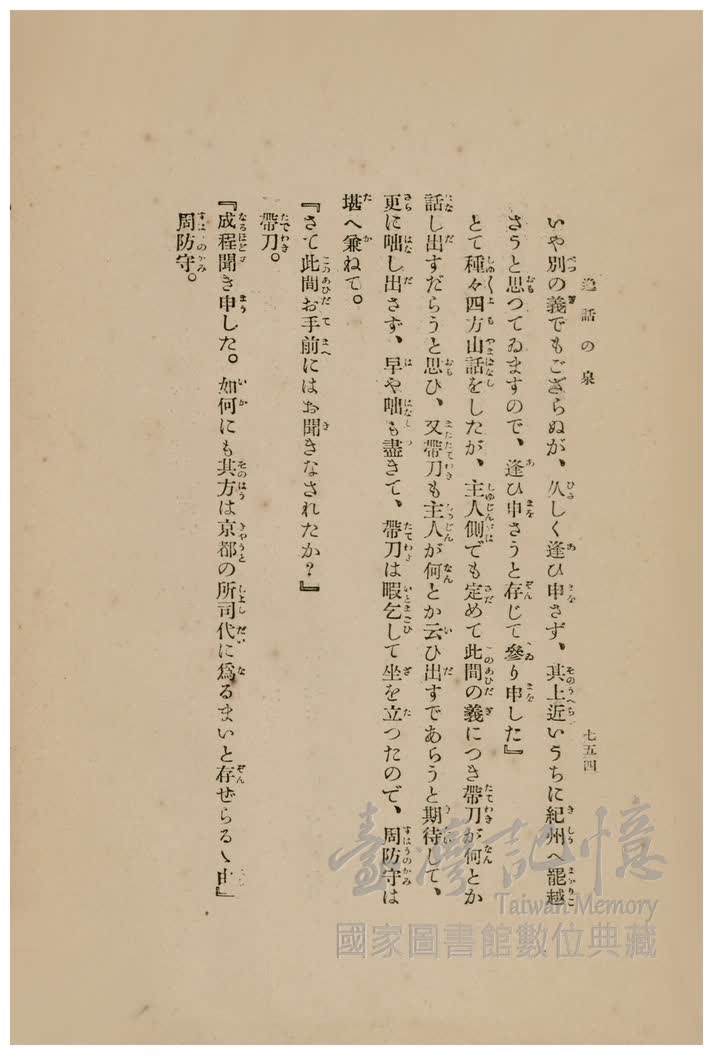 逸話の泉
七五四
いや別の義でもござらぬが、久しく逢ひ申さず、其上近いうちに紀州へ罷越
さうと思つてゐますので、逢ひ申さうと存じて參り申した』
とて種々四方山話をしたが、主人側でも定めて此間の義につき帶刀が何とか
話し出すだらうと思ひ、又帶刀も主人が何とか云ひ出すであらうと期待して、
更に咄し出さず、早や咄も盡きて、帶刀は暇乞して坐を立つたので、周防守は
堪へ兼ねて。
『さて此間お手前にはお聞きなされたか?』
帶刀。
『成程聞き申した。如何にも其方は京都の所司代に爲るまいと存ぜらるゝ由』
周防守。
臺灣記憶
Taiwan Memory
國家圖書館數位典藏